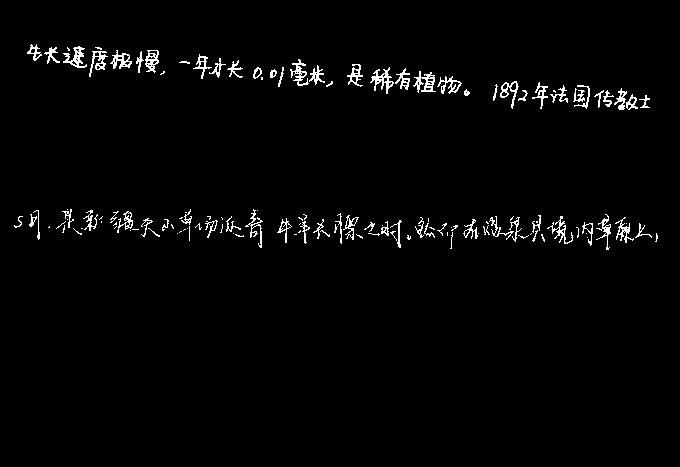 生长速度极慢，一年才长0.01毫米，是稀有植物。1892年法国传教士
5月.是新疆天山草场返青牛羊长膘之时。然而在温泉县境内草原上，